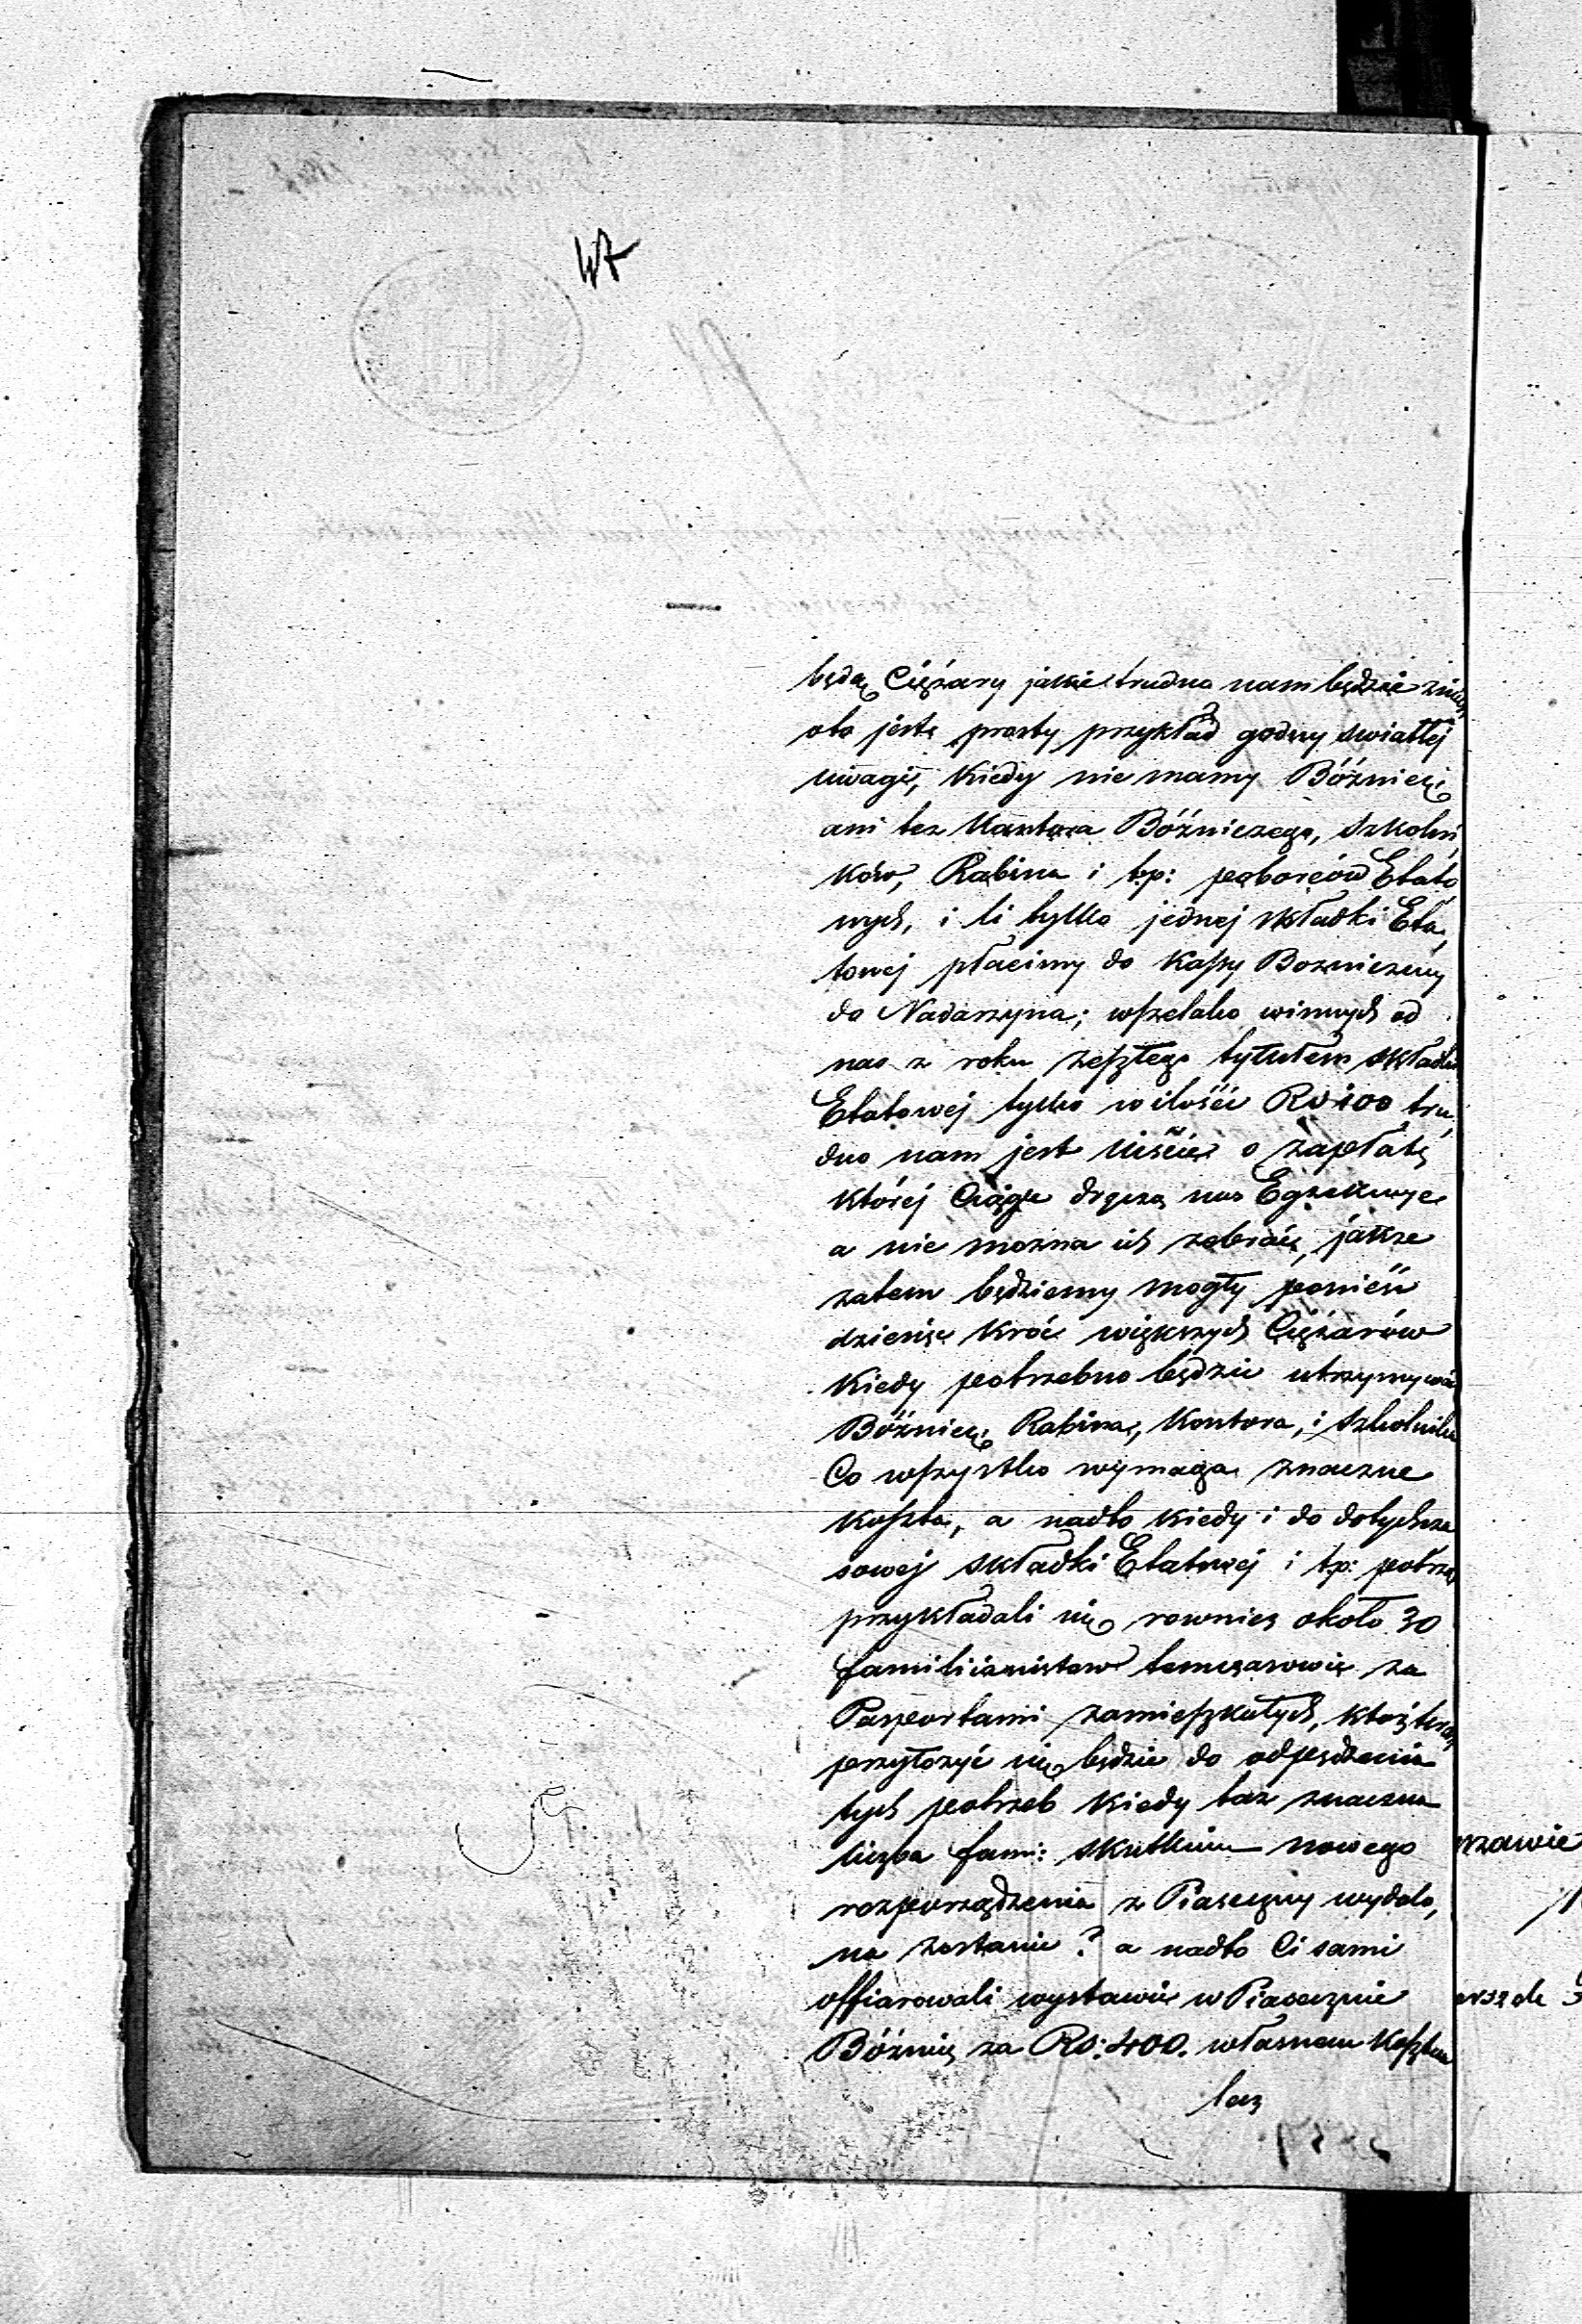 47
będą Ciężary jakie trudno nam będzie
oto jest prosty przykład godny swiatłej
uwagi, kiedy nie mamy Bóźnicy
ani tez Kantora Bóźniczego, szkolni,
ków, Rabina i tp: poborców Etato
wych, i li tylko jednej składki Eta,
towej płacimy do Kassy Bozniczey
do Nadarzyna; wszelako winnych od
nas z roku zeszłego tytułem składki
Etatowej tylko w ilości Rs 100 tru,
dno nam jest uiścić o zapłatę
której Ciągle dręczą nas Egzekucye
a nie mozna ich zebrać, jakze
zatem będziemy mogły ponieść
dziesięć kroć większych Ciężarów
kiedy potrzebno będzie utrzymywać
Bóźnicę Rabina, Kontora, i szkolnika
Co wszystko wymaga znaczne
koszta, a nadto kiedy i do dotychcza
sowej składki Etatowej i tp: potrzeb
przykładali się rownież około 30
familiiantow temczasowie za
Paszportami zamieszkałych, któż teraz
przyłożyć się będzie do odpędzenia
tych potrzeb kiedy taż znaczna
liczba fami: skutkiem nowego
rozporządzenia z Piaseczny wydalo,
na zostanie? a nadto Ci sami
offiarowali wystawić w Piasecznie
Bóźnię za Rs: 400. własnem kosztem
lecz